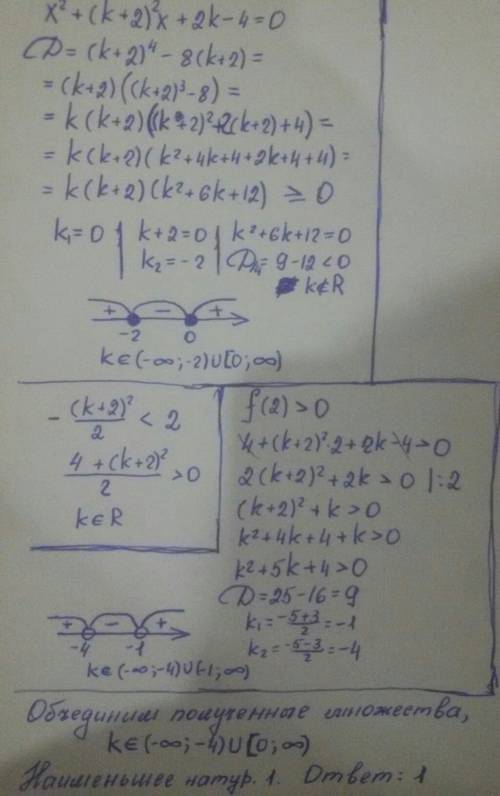 x² + (k+2)²x + 2k - 4 = 0
D = (k+2)⁴ - 8(k+2) =
= (k+2)((k+2)³ - 8) =
= k(k+2)((k+2)² + 2(k+2) + 4) =
= k(k+2)(k² + 4k + 4 + 2k + 4 + 4) =
= k(k+2)(k² + 6k + 12) ≥ 0
k₁ = 0 | k+2 = 0 | k² + 6k + 12 = 0
k₂ = -2 | D/4 = 9 - 12 < 0
k∉R
+ - +
-2 0
k∈(-∞;-2)∪[0;∞)
- (k+2)²/2 < 2
(4 + (k+2)²)/2 > 0
k∈R
f(2) > 0
4 + (k+2)²·2 + 2k - 4 > 0
2(k+2)² + 2k > 0 |:2
(k+2)² + k > 0
k² + 4k + 4 + k > 0
k² + 5k + 4 > 0
D = 25 - 16 = 9
k₁ = (-5+3)/2 = -1
k₂ = (-5-3)/2 = -4
+ - +
-4 -1
k∈(-∞;-4)∪(-1;∞)
Объединим полученные множества,
k∈(-∞;-4)∪[0;∞)
Наименьшее натур. 1. Ответ: 1